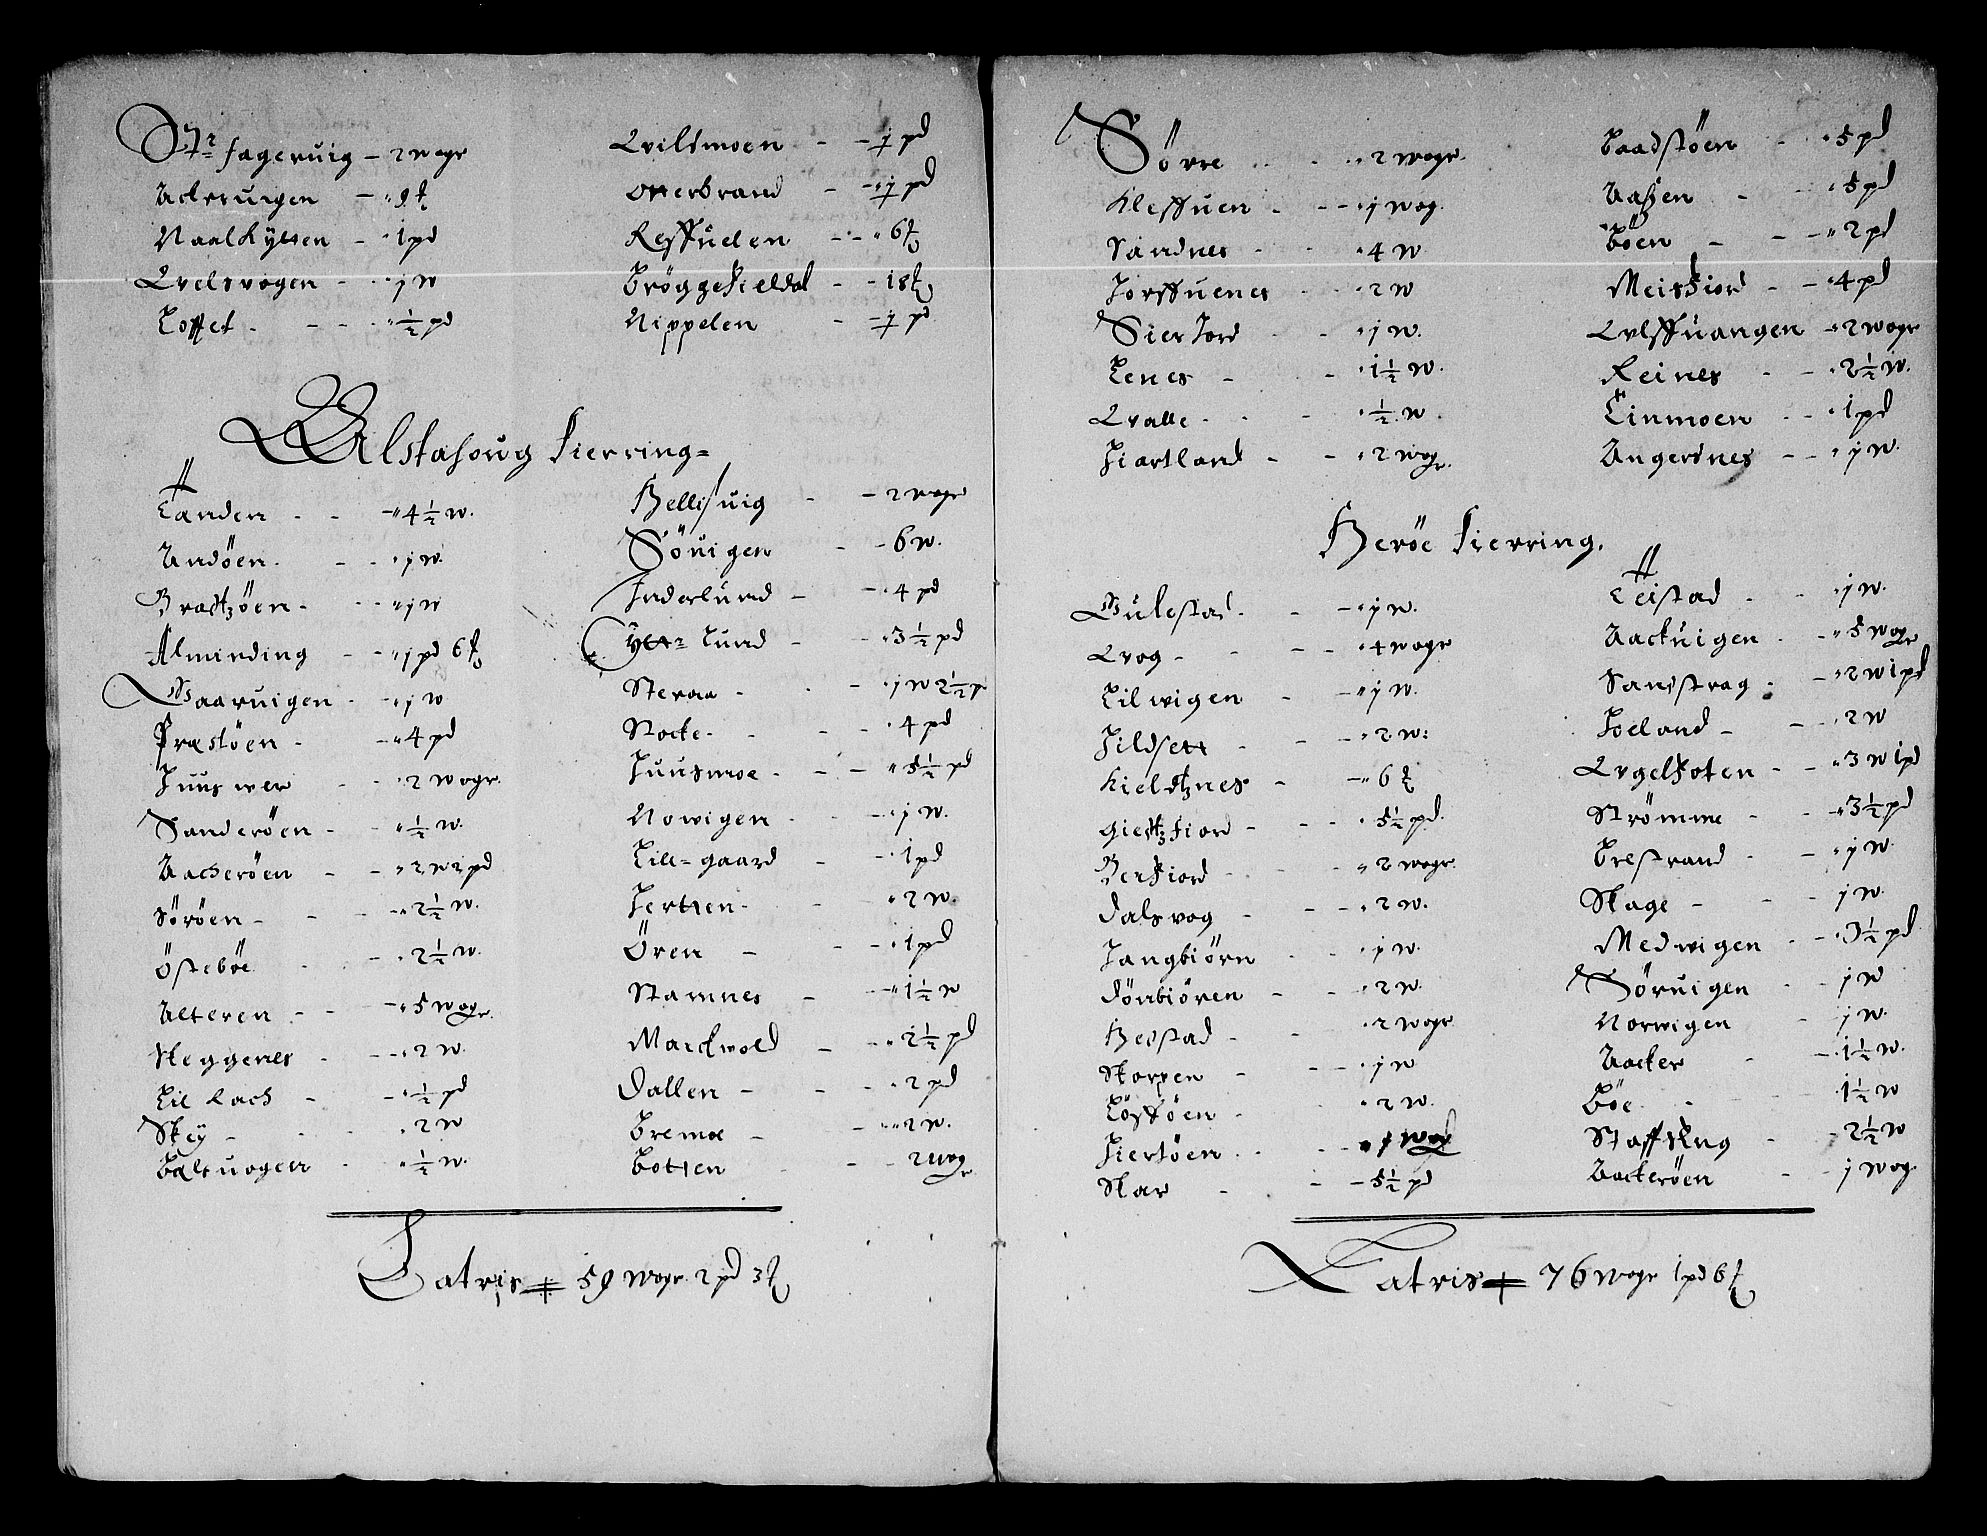 Str fageruig - 2 wogr
Ackruigen - 9 ℔
Naalkylsen - 1 pd
Quelsvogen - 1 w
Loffet - ½ pd
Quilsmoen - 1 pd
Otterbrand - 1 pd
Reffuelen - 6 ℔
Bröggefieldal - 18 ℔
Nippelen - 1 pd
Alstahoug fierring
Landen - 4½ w.
Andöen - 1 w.
Bradtzöen - 1 w
Alminding - 1 pd 6 ℔
Gaaruigen - 1 w
Præstöen - 4 pd
Juuswer - 2 wogr
Sanderöen - ½ w.
Aacheröen - 2 w 2 pd
Söröen - 2½ w.
Östeböe - 2½ w.
Alteren - 5 wogr
Skeggenes - 2 w.
Lil Rach - ½ pd
Skey - 2 w
Baltuogen - ½ w.
Bellisuig - 2 wogr
Söuigen - 6 w.
Inderlund - 4 pd
Ytr lund - 3½ pd
Steraa - 1 w 2½ p
Stocke - 4 pd
Juusmoe - 5½ pd
Nowigen - 1 w.
Lille-gaard - 1 pd
Jertsen - 2 w.
Ören - 1 pd
Stamnes - 1½ w
Marckvold - 2½ pd
Dallen - 2 pd
Bremoe - 2 w.
Botten - 2 wogr
Latris 59 wogr 2 pd 3 ℔
Sörre - 2 wogr.
Kleffuen - 1 wog.
Sandnes - 4 w
Torffuenes - 2 w
Sierjord - 1 w.
Lenes - 1½ w.
Qualle - ½ w.
Hiartland - 2 wogr.
Baadstöen - 5 pd
Aasen - 5 pd
Böen - 2 pd
Meisfiord - 4 pd
Leffuangen - 2 wogr
Reines - 2½ w.
Linmoen - 1 pd
Angersnes - 1 w.
Heröe fierring.
Gulestad - 1 w.
Quog - 4 wogr
Lilwigen - 1 w.
Hildsett - 2 w:
Kieldtznes - 6 ℔
Giedtzfiord - 5½ pd.
Berfiord - 2 wogr
Dalsvog - 2 w.
Tangbiörn - 1 w.
Dönbiören - 2 w.
Bestad - 2 wogr
Skorpen - 1 w
Löfföen - 2 w.
Hiertöen - 1 wog
Skar - 5½ pd
Leistad - 1 w.
Aackuigen - 5 wogr
Sandstrag - 2 w 1 pd
Hoeland - 2 w
Engelskoten - 3 w 1 pd
Strömme - 3½ pd
Brestrand - 1 w.
Skage - 1 w
Medwigen - 3½ pd
Söruigen - 1 w
Norwigen - 1 w.
Aacker - 1½ w.
Böe - 1½ w
Staffskog - 2½ w
Aackeröen - 1 wog
Latris 76 wogr 1 pd 6 ℔